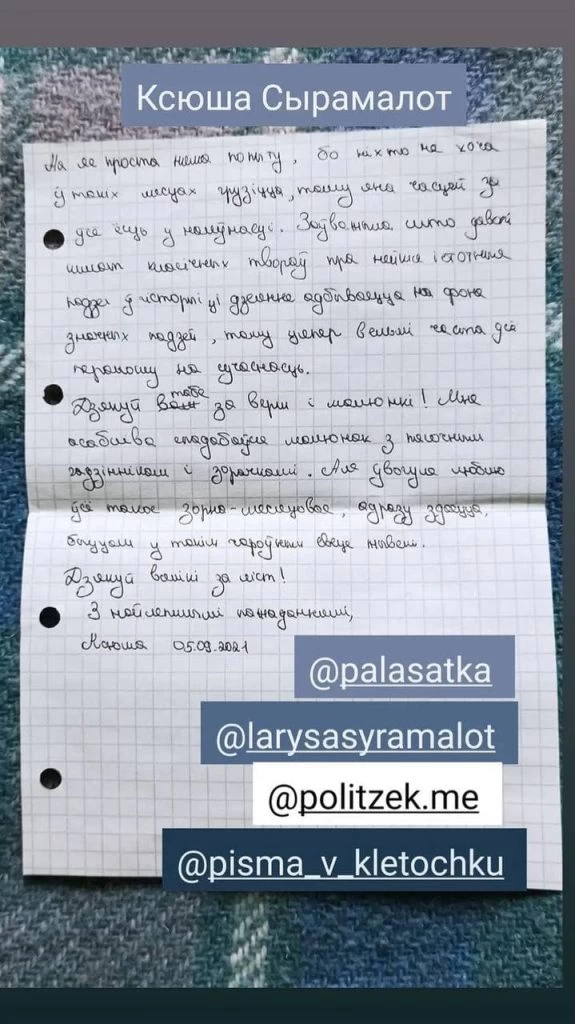 Ксюша Сырамалот
На яе проста няма попыту, бо ніхто не хоча
ў такіх месцах грузіцца, таму яна часцей за
ўсё ёсць у наяўнасці. Заўважыла што даволі
шмат класічных твораў пра нейкія істотныя
падзеі ў гісторыі ці дзеянне адбываецца на фоне
значных падзей, таму цяпер вельмі часта ўсё
пераношу на сучаснасць.
Дзякуй табе за верш і малюнкі! Мне
асабліва спадабаўся малюнак з пясочным
гадзіннікам і зорачкамі. Аля ўвогуле люблю
ўсё такое зорна-месяцовае, адразу здаецца,
быццам у такім чароўным свеце жывеш.
Дзякуй вялікі за ліст!
З найлепшымі пажаданнямі,
Ксюша 05.09.2021
@palasatka
@larysasyramalot
@politzek.me
@pisma_v_kletochku